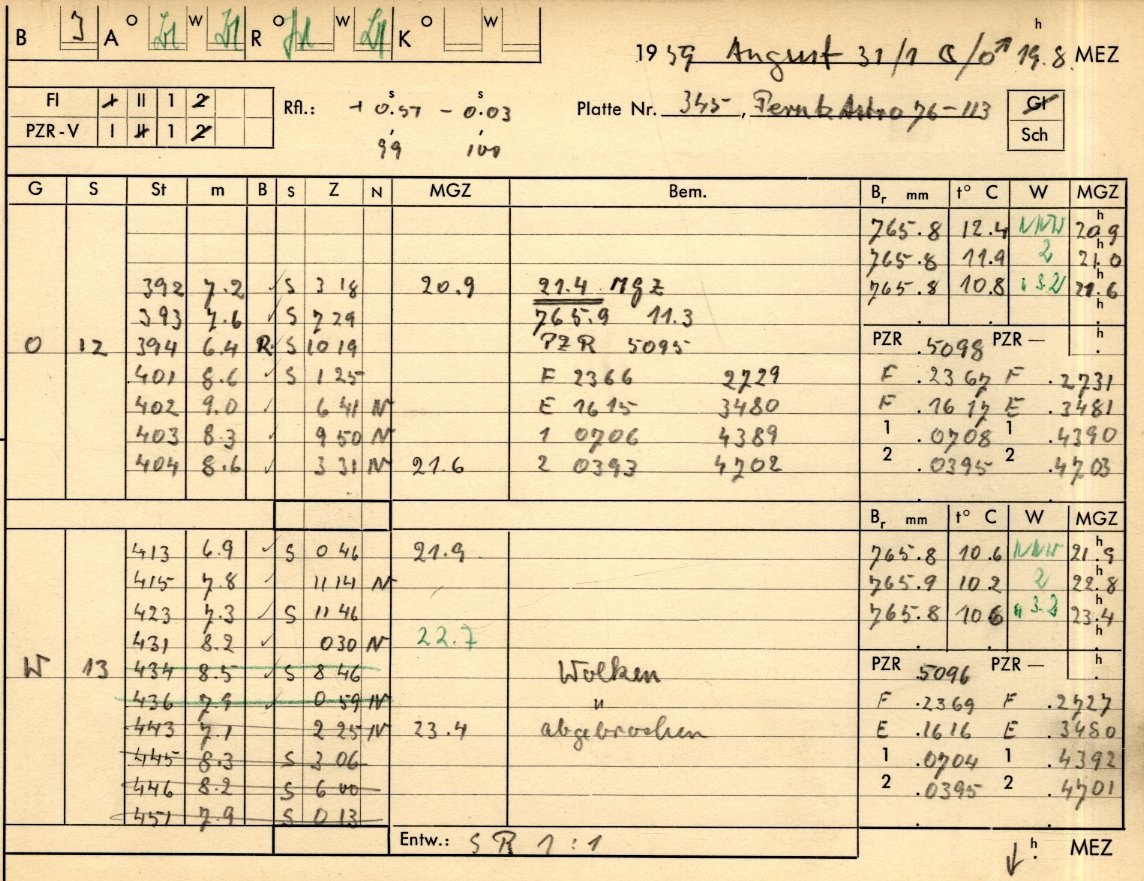 B J A O W R O W K O W
h
1959 August 31/1 19.8 MEZ
FI I II 1 2
PZR-V I II 1 2
Rfl.: + 0.57 - 0.03
s s
99 100
Platte Nr. 345, 76-113
Gl
Sch
G S St m B S Z N MGZ Bem. Br mm t° C W MGZ
765.8 12.4 NNW 20.9
765.8 11.9 2 21.0
392 7.2 ✓ S 3 18 20.9 21.4 MGZ 765.8 10.8 3.2 21.6
393 7.6 ✓ S 7 29 765.9 11.3
O 12 394 6.4 R S 10 19 PZR 5095 PZR .5098 PZR —
401 8.6 ✓ S 1 25 F 2366 2729 F .2367 F .2731
402 9.0 ✓ 6 41 N E 1615 3480 .1617 E .3481
403 8.3 ✓ 9 50 N 1 0706 4389 1 .0708 1 .4390
404 8.6 ✓ 3 31 N 21.6 2 0393 4702 2 .0395 2 .4703
Br mm t° C W MGZ
413 6.9 ✓ S 0 46 21.9 765.8 10.6 NNW 21.9
415 7.8 ✓ 11 14 N 765.9 10.2 2 22.8
423 7.3 ✓ S 11 46 765.8 10.6 3.2 23.4
431 8.2 ✓ 0 30 N 22.7
W 13 434 8.5 ✓ S 8 46 Wolken PZR .5096 PZR —
436 7.9 ✓ 0 59 N " F .2369 F .2727
443 7.1 2 25 N 23.4 abgebrochen E .1616 E .3480
445 8.3 S 3 06 1 .0704 1 .4392
446 8.2 S 6 00 2 .0395 2 .4701
451 7.9 S 0 13
Entw.: SR 1:1 h MEZ